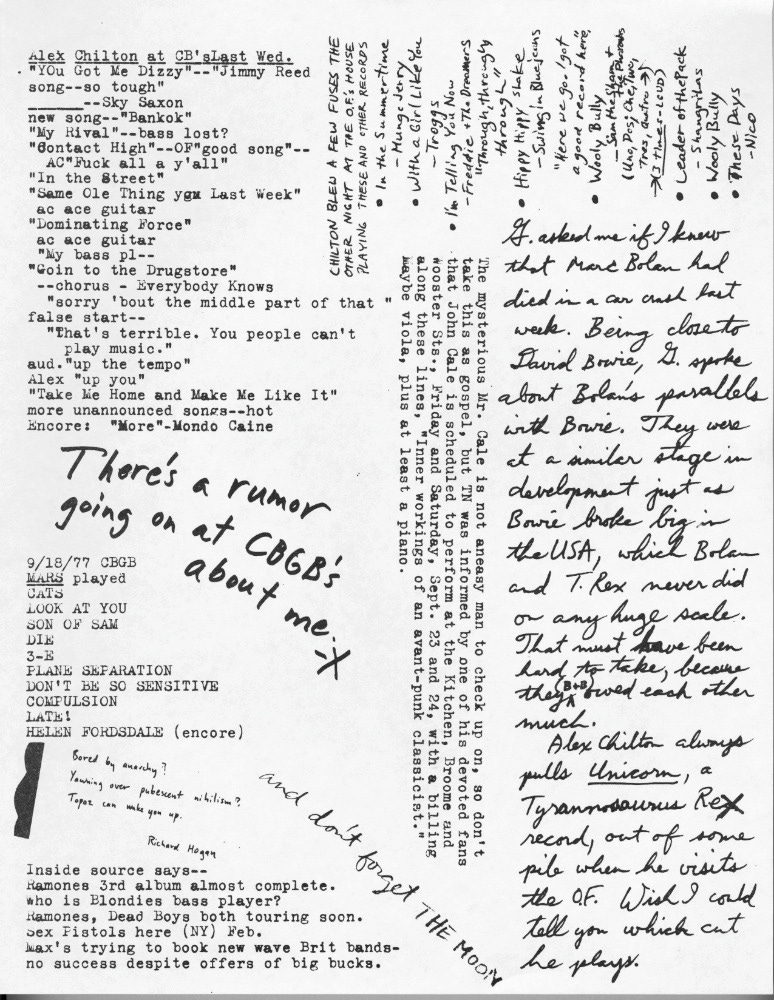 Alex Chilton at CB'sLast Wed.
"YOu Got Me Dizzy"--"Jimmy Reed
song--so tough"
______--Sky Saxon
new song--"Bankok"
"My Rival"--bass lost?
"Contact High"--OF"good song"--
AC"Fuck all a y'all"
"In the Street"
"Same Ole Thing Last Week"
ac ace guitar
"Dominating Force"
ac ace guitar
"My bass pl--
"Goin to the Drugstore"
--chorus - Everybody Knows
"sorry 'bout the middle part of that "
false start--
"That's terrible. You people can't
play music."
aud."up the tempo"
Alex "up you"
"Take Me Home and Make Me Like It"
more unannounced songs--hot
Encore: "More"-Mondo Caine
CHILTON BLEW A FEW FUSES THE
OTHER NIGHT AT THE O.F.'S HOUSE
PLAYING THESE AND OTHER RECORDS
• In the Summertime
- Mungo Jerry
• With a Girl Like You
- Troggs
• I'm Telling You Now
- Freddie + The Dreamers
"Through, throughly
through"
• Hippy Hippy Shake
- Swing in Bluejeans
"Here we go I got
a good record here"
• Wooly Bully
- Sam the Sham + The Pharoahs
(Uno, Dos; One, Two,
Tres, Quatro →)
→(3 times - LOUD)
• Leader of the Pack
- Shangrilas
• Wooly Bully
• These Days
- Nico
The mysterious Mr. Cale is not aneasy man to check up on, so don't
take this as gospel, but TN was informed by one of his devoted fans
that John Cale is scheduled to perform at the Kitchen, Broome and
Wooster Sts., Friday and Saturday, Sept. 23 and 24, with a billing
along these lines, "Inner workings of an avant-punk classicist."
Maybe viola, plus at least a piano.
G. asked me if I knew
that Marc Bolan had
died in a car crash last
week. Being close to
David Bowie, G. spoke
about Bolan's parallels
with Bowie. They were
at a similar stage in
development just as
Bowie broke big in
the USA, which Bolan
and T. Rex never did
on any huge scale.
That must have been
hard to take, because
they (B+B) owed each other
much.
Alex Chilton always
pulls Unicorn, a
Tyrannosaurus Rex
record, out of some
pile when he visits
the O.F. Wish I could
tell you which cut
he plays.
There's a rumor
going on at CBGB's
about me. -X
9/18/77 CBGB
MARS played
CATS
LOOK AT YOU
SON OF SAM
DIE
3-E
PLANE SEPARATION
DON'T BE SO SENSITIVE
COMPULSION
LATE!
HELEN FORDSDALE (encore)
Bored by anarchy?
Yawning over pubescent nihilism?
Topaz can wake you up.
Richard Hogan
and don't forget THE MOON
Inside source says--
Ramones 3rd album almost complete.
Who is Blondies bass player?
Ramones, Dead Boys both touring soon.
Sex Pistols here (NY) Feb.
Max's trying to book new wave Brit bands-
no success despite offers of big bucks.